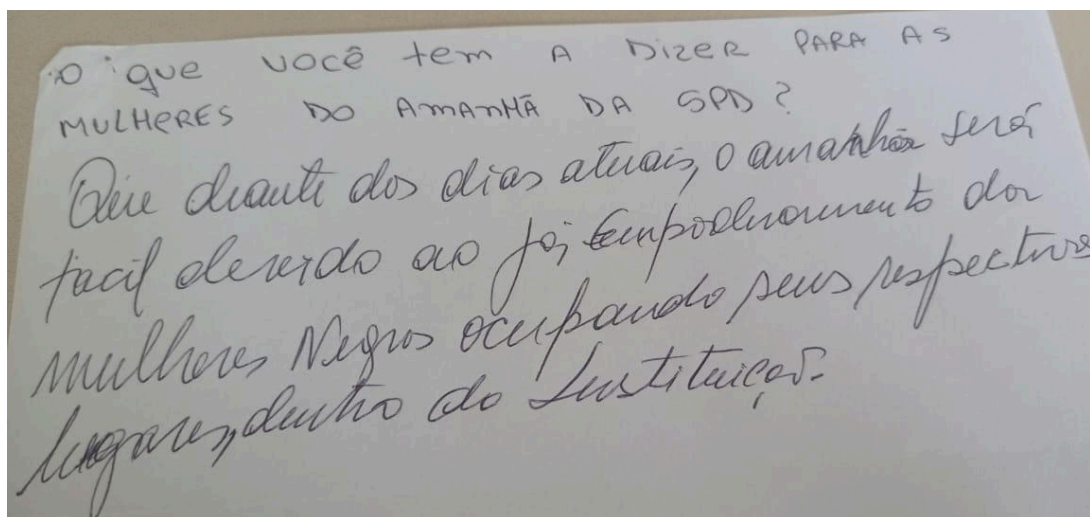 O que você tem A DizeR PARA AS
MULHERES DO AMANHÃ DA SPD?
Que diante dos dias atuais, o amanhã será
facil devido ao já empoderamento das
mulheres Negras ocupando seus respectivos
lugares, dentro da Instituição.